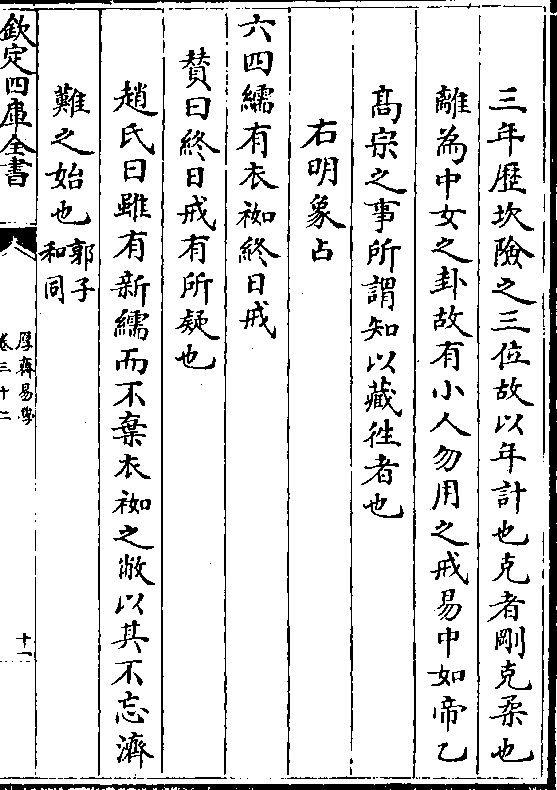 三年歷坎險之三位故以年計也克者剛克柔也
離為中女之卦故有小人勿用之戒易中如帝乙
髙宗之事所謂知以藏徃者也
右明象占
六四繻有衣袽終日戒
賛曰終日戒有所疑也
趙氏曰雖有新繻而不棄衣袽之敝以其不忘濟
難之始也郭子和同
欽定四庫全書
厚齋易學
卷三十二
十一